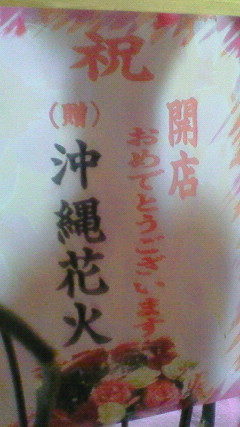 祝
開店
おめでとうございます
(贈)
沖縄花火